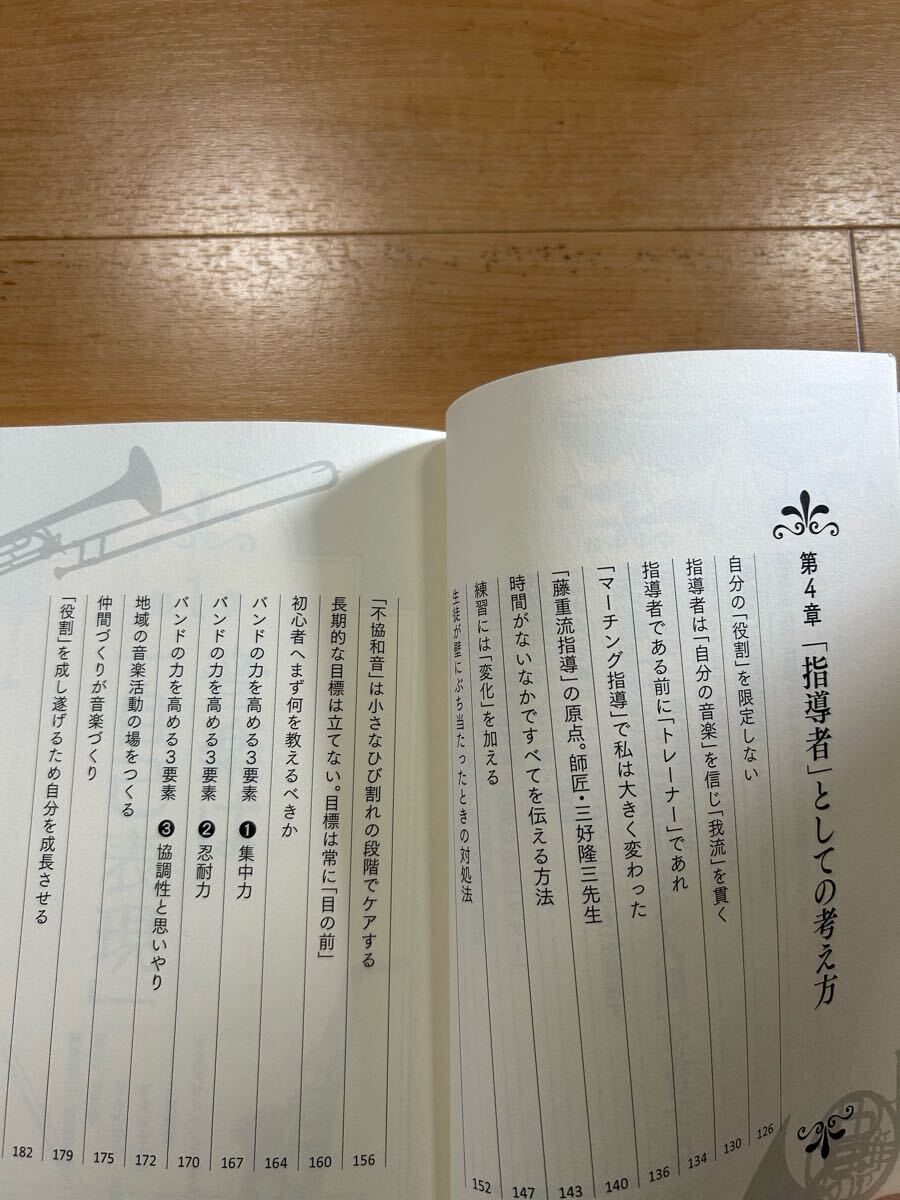 第4章 「指導者」としての考え方
自分の「役割」を限定しない 126
指導者は「自分の音楽」を信じ「我流」を貫く 130
指導者である前に「トレーナー」であれ 134
「マーチング指導」で私は大きく変わった 136
「藤重流指導」の原点。師匠・三好隆三先生 140
時間がないなかですべてを伝える方法 143
練習には「変化」を加える 147
生徒が壁にぶち当たったときの対処法 152
「不協和音」は小さなひび割れの段階でケアする 156
長期的な目標は立てない。目標は常に「目の前」 160
初心者へまず何を教えるべきか 164
バンドの力を高める3要素 ❶ 集中力 167
バンドの力を高める3要素 ❷ 忍耐力 170
バンドの力を高める3要素 ❸ 協調性と思いやり 172
地域の音楽活動の場をつくる 175
仲間づくりが音楽づくり 179
「役割」を成し遂げるため自分を成長させる 182